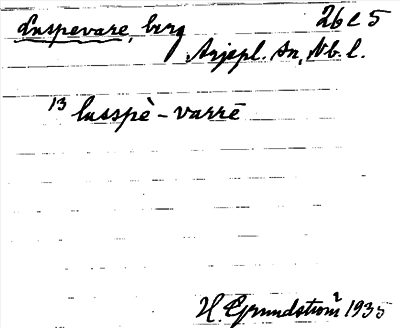 Luspevare, berg 26 c 5
Arjepl. sn, Nb. l.
13 lusspè-varrē
H. Grundström 1935